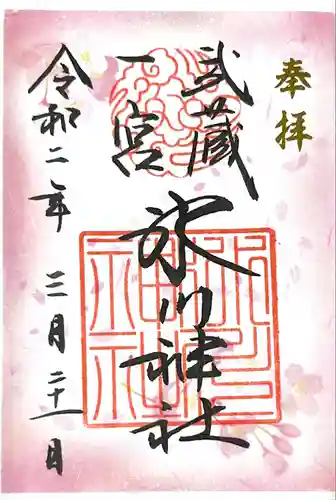 奉拝
武蔵
一宮
氷川神社
令和二年 三月二十一日
氷川
神社